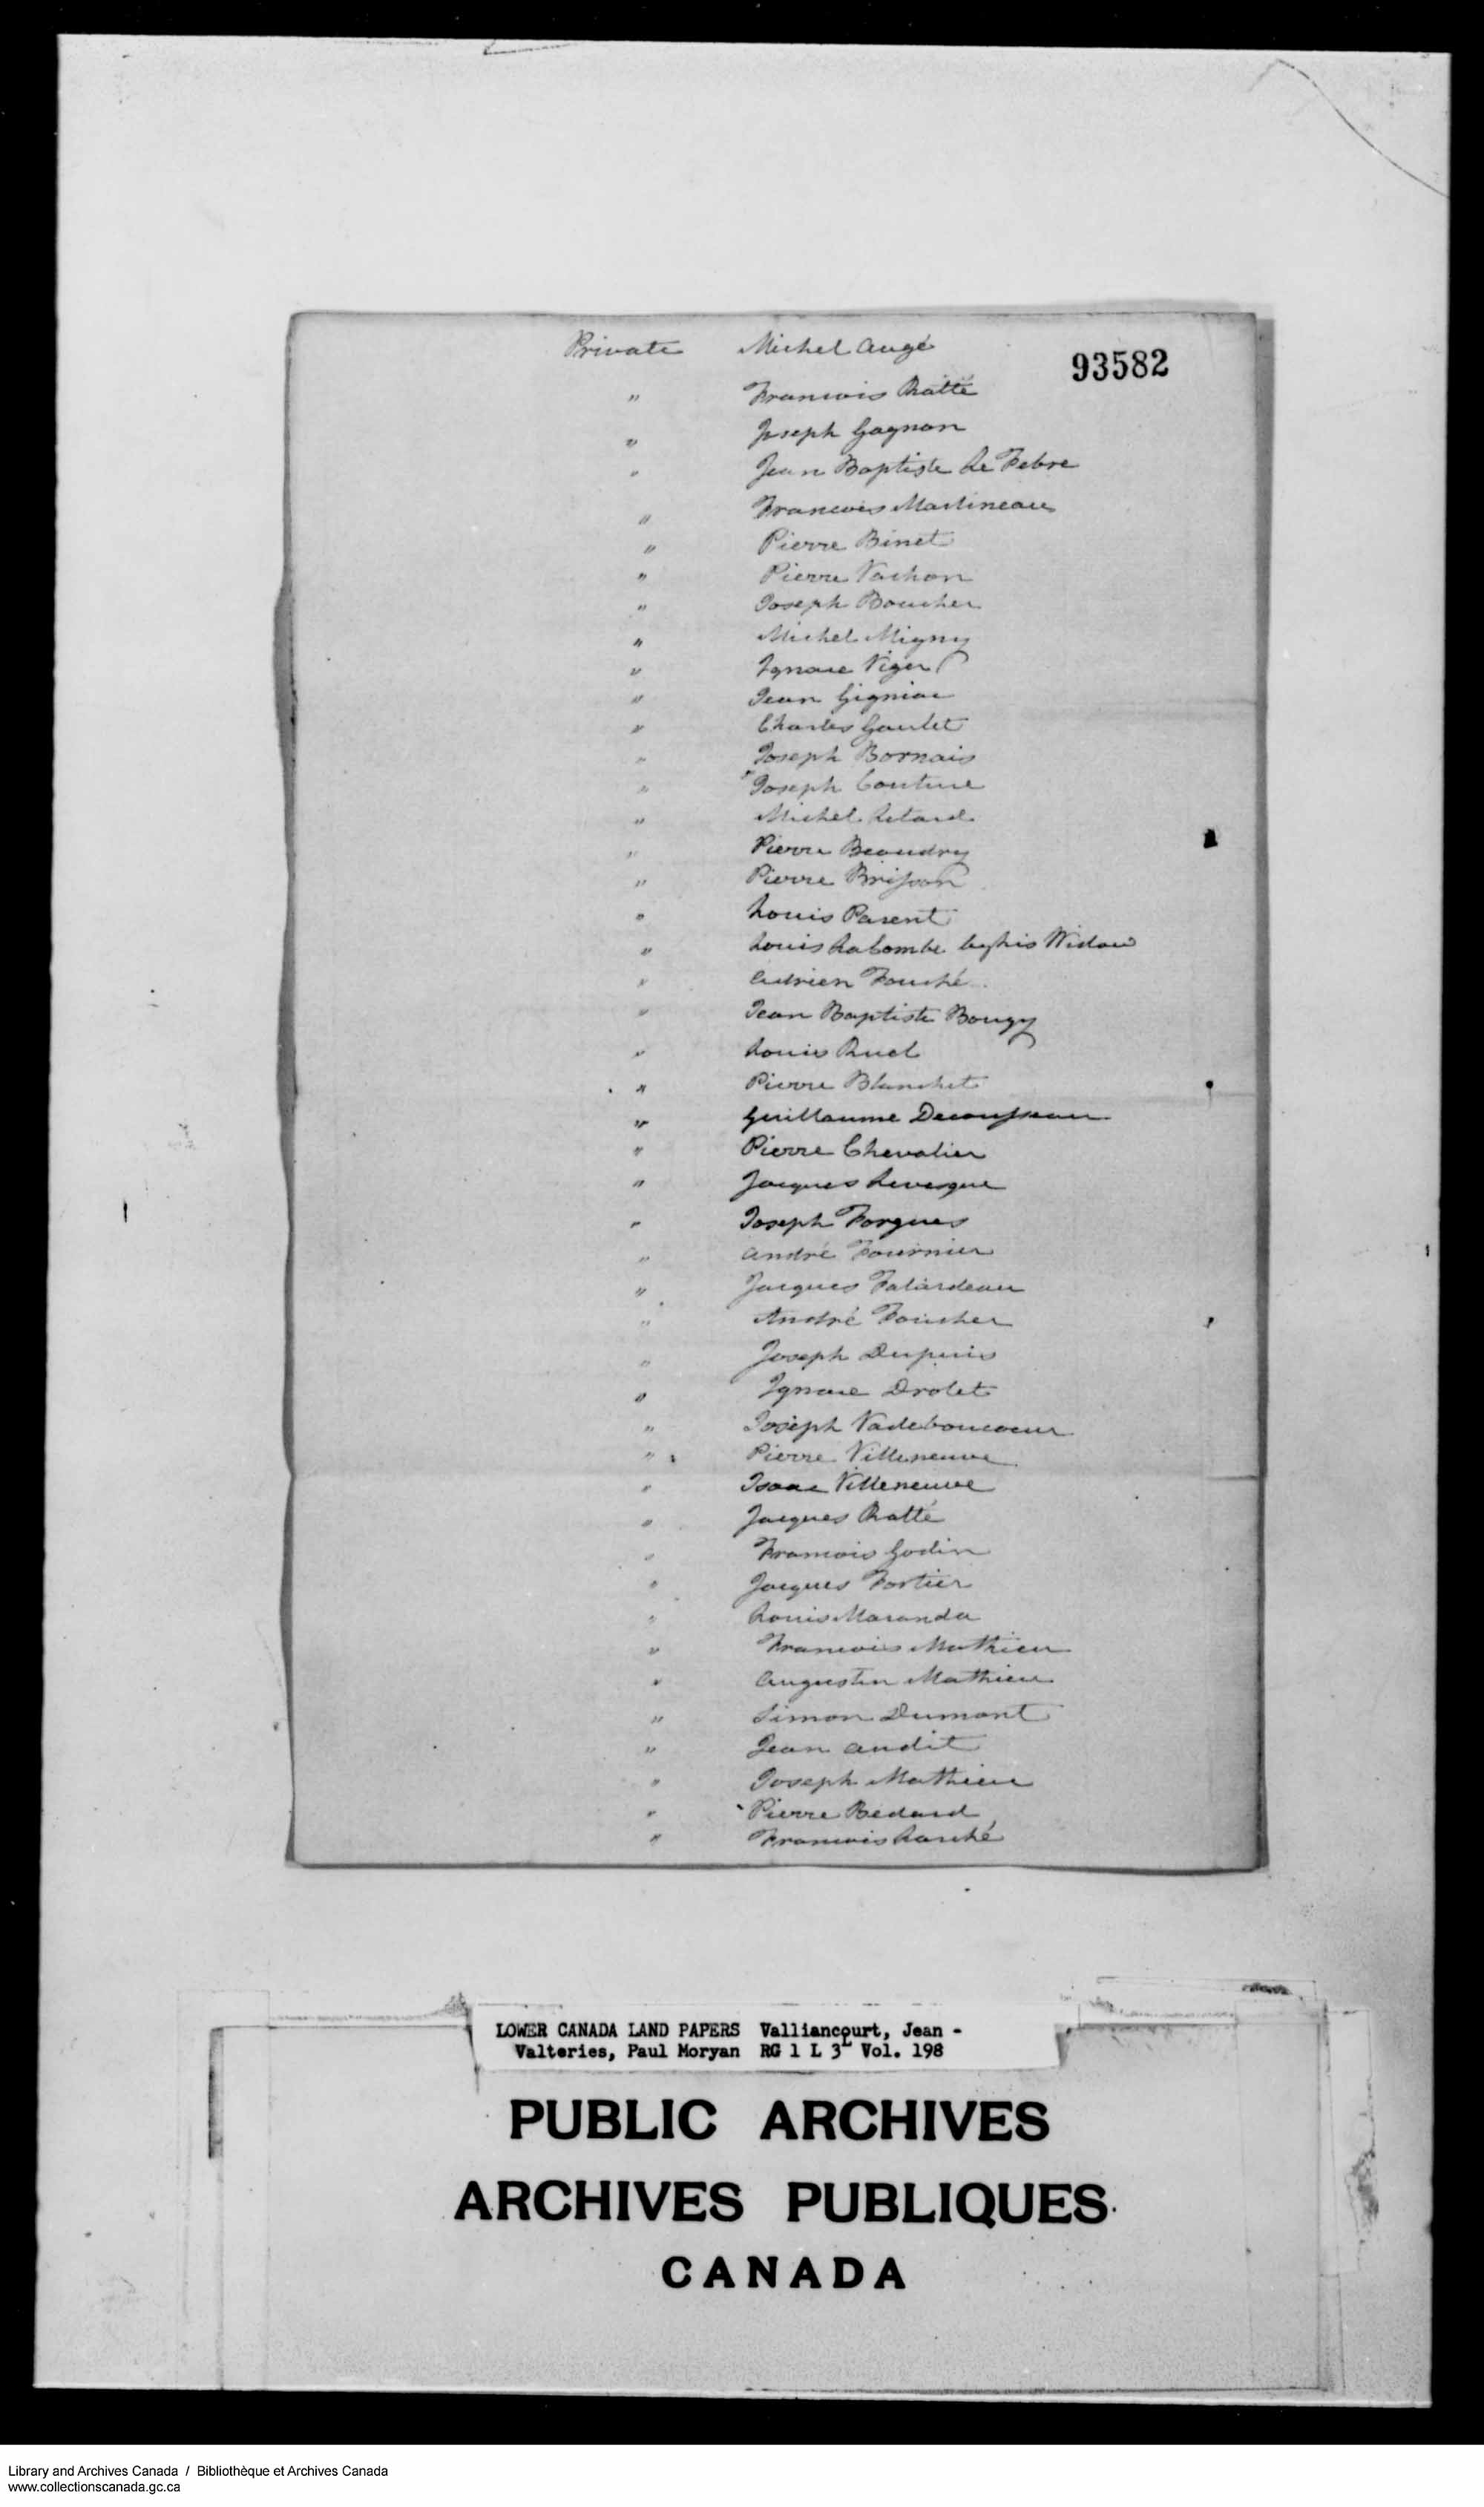 Private Michel Augé
93582
" Francois Ratté
" Joseph Gagnon
" Jean Baptiste Le Febre
" Francois Martineau
" Pierre Binet
" Pierre Vachon
" Joseph Boucher
" Michel Migny
" Ignace Viger
" Jean Gigniac
" Charles Goulet
" Joseph Bornais
" Joseph Couture
" Michel Letard
" Pierre Beaudry
" Pierre Brisson
" Louis Parent
" Louis LaCombe by his Widow
" Adrien Fouché
" Jean Baptiste Bougy
" Louis Ruel
" Pierre Blanchet
" Guillaume
" Pierre Chevalier
" Jacques Levesque
" Joseph Forgues
" André Fournier
" Jacques Falardeau
" André Foucher
" Joseph Dupuis
" Ignace Drolet
" Joseph Vadeboucoeur
" Pierre Villeneuve
" Isaac Villeneuve
" Jacques Ratté
" Francois Godin
" Jacques Fortier
" Louis Maranda
" Francois Mathieu
" Augustin Mathieu
" Simon Dumont
" Jean Audit
" Joseph Mathieu
" Pierre Bedard
" Francois Larché
LOWER CANADA LAND PAPERS Valliancourt, Jean -
Valteries, Paul Moryan RG 1 L 3L Vol. 198
PUBLIC ARCHIVES
ARCHIVES PUBLIQUES
CANADA
Library and Archives Canada / Bibliothèque et Archives Canada
www.collectionscanada.gc.ca